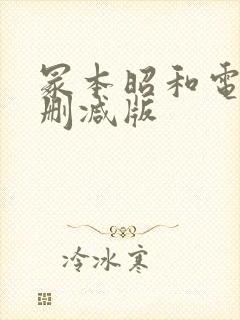 冢本昭和電
删减版
冷冰寒